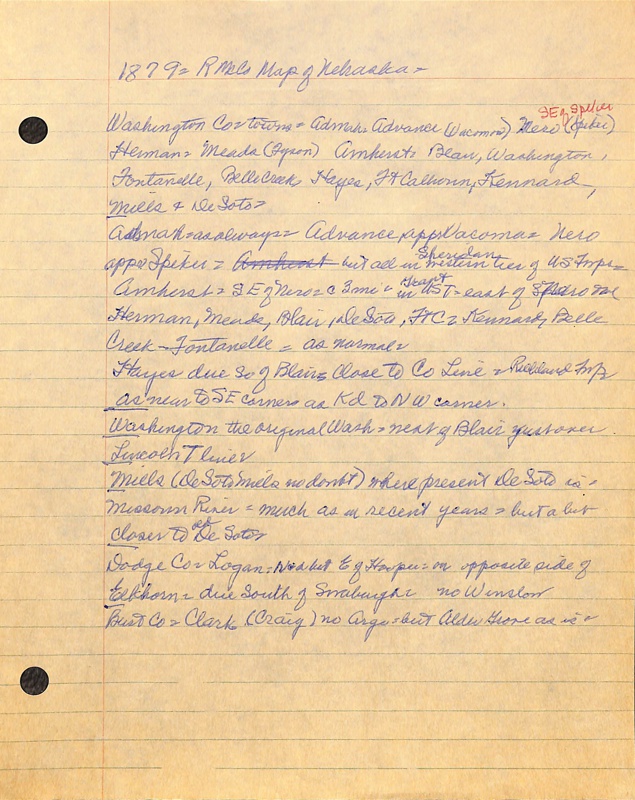 1879 = R McLs Map of Nebraska =
SE of Spiker
Washington Co = towns = Admah, Advance (Vacoma) Nero (Spiker)
Herman = Meade (Tyson) Amherst = Bean, Washington,
Fontanelle, Belle Creek Hayes, Ft Calhoun, Kennard,
Mills & De Soto =
Admah = as always = Advance, appr Vacoma = Nero
appr Spiker = Amherst but all in western tier of US Twps =
Sheridan
Amherst = SE of Nero = c 3 mi = in UST = east of
Grant
Herman, Meade, Blair, DeSoto, Ft C = Kennard, Belle
Creek - Fontanelle = as normal =
Hayes due So of Blair = close to Co Line = Richland Twp
as near to SE corner as Kd to NW corner.
Washington the original Wash = next of Blair just over
Lincoln T line
Mills (DeSoto Mills no doubt) where present De Soto is =
Missouri River = much as in recent years = but a bit
closer to old De Soto =
Dodge Co = Logan = but E of Hooper = on opposite side of
Elkhorn = due South of no Winslow
Burt Co = Clark (Craig) no Argo = but Alder Grove as is =